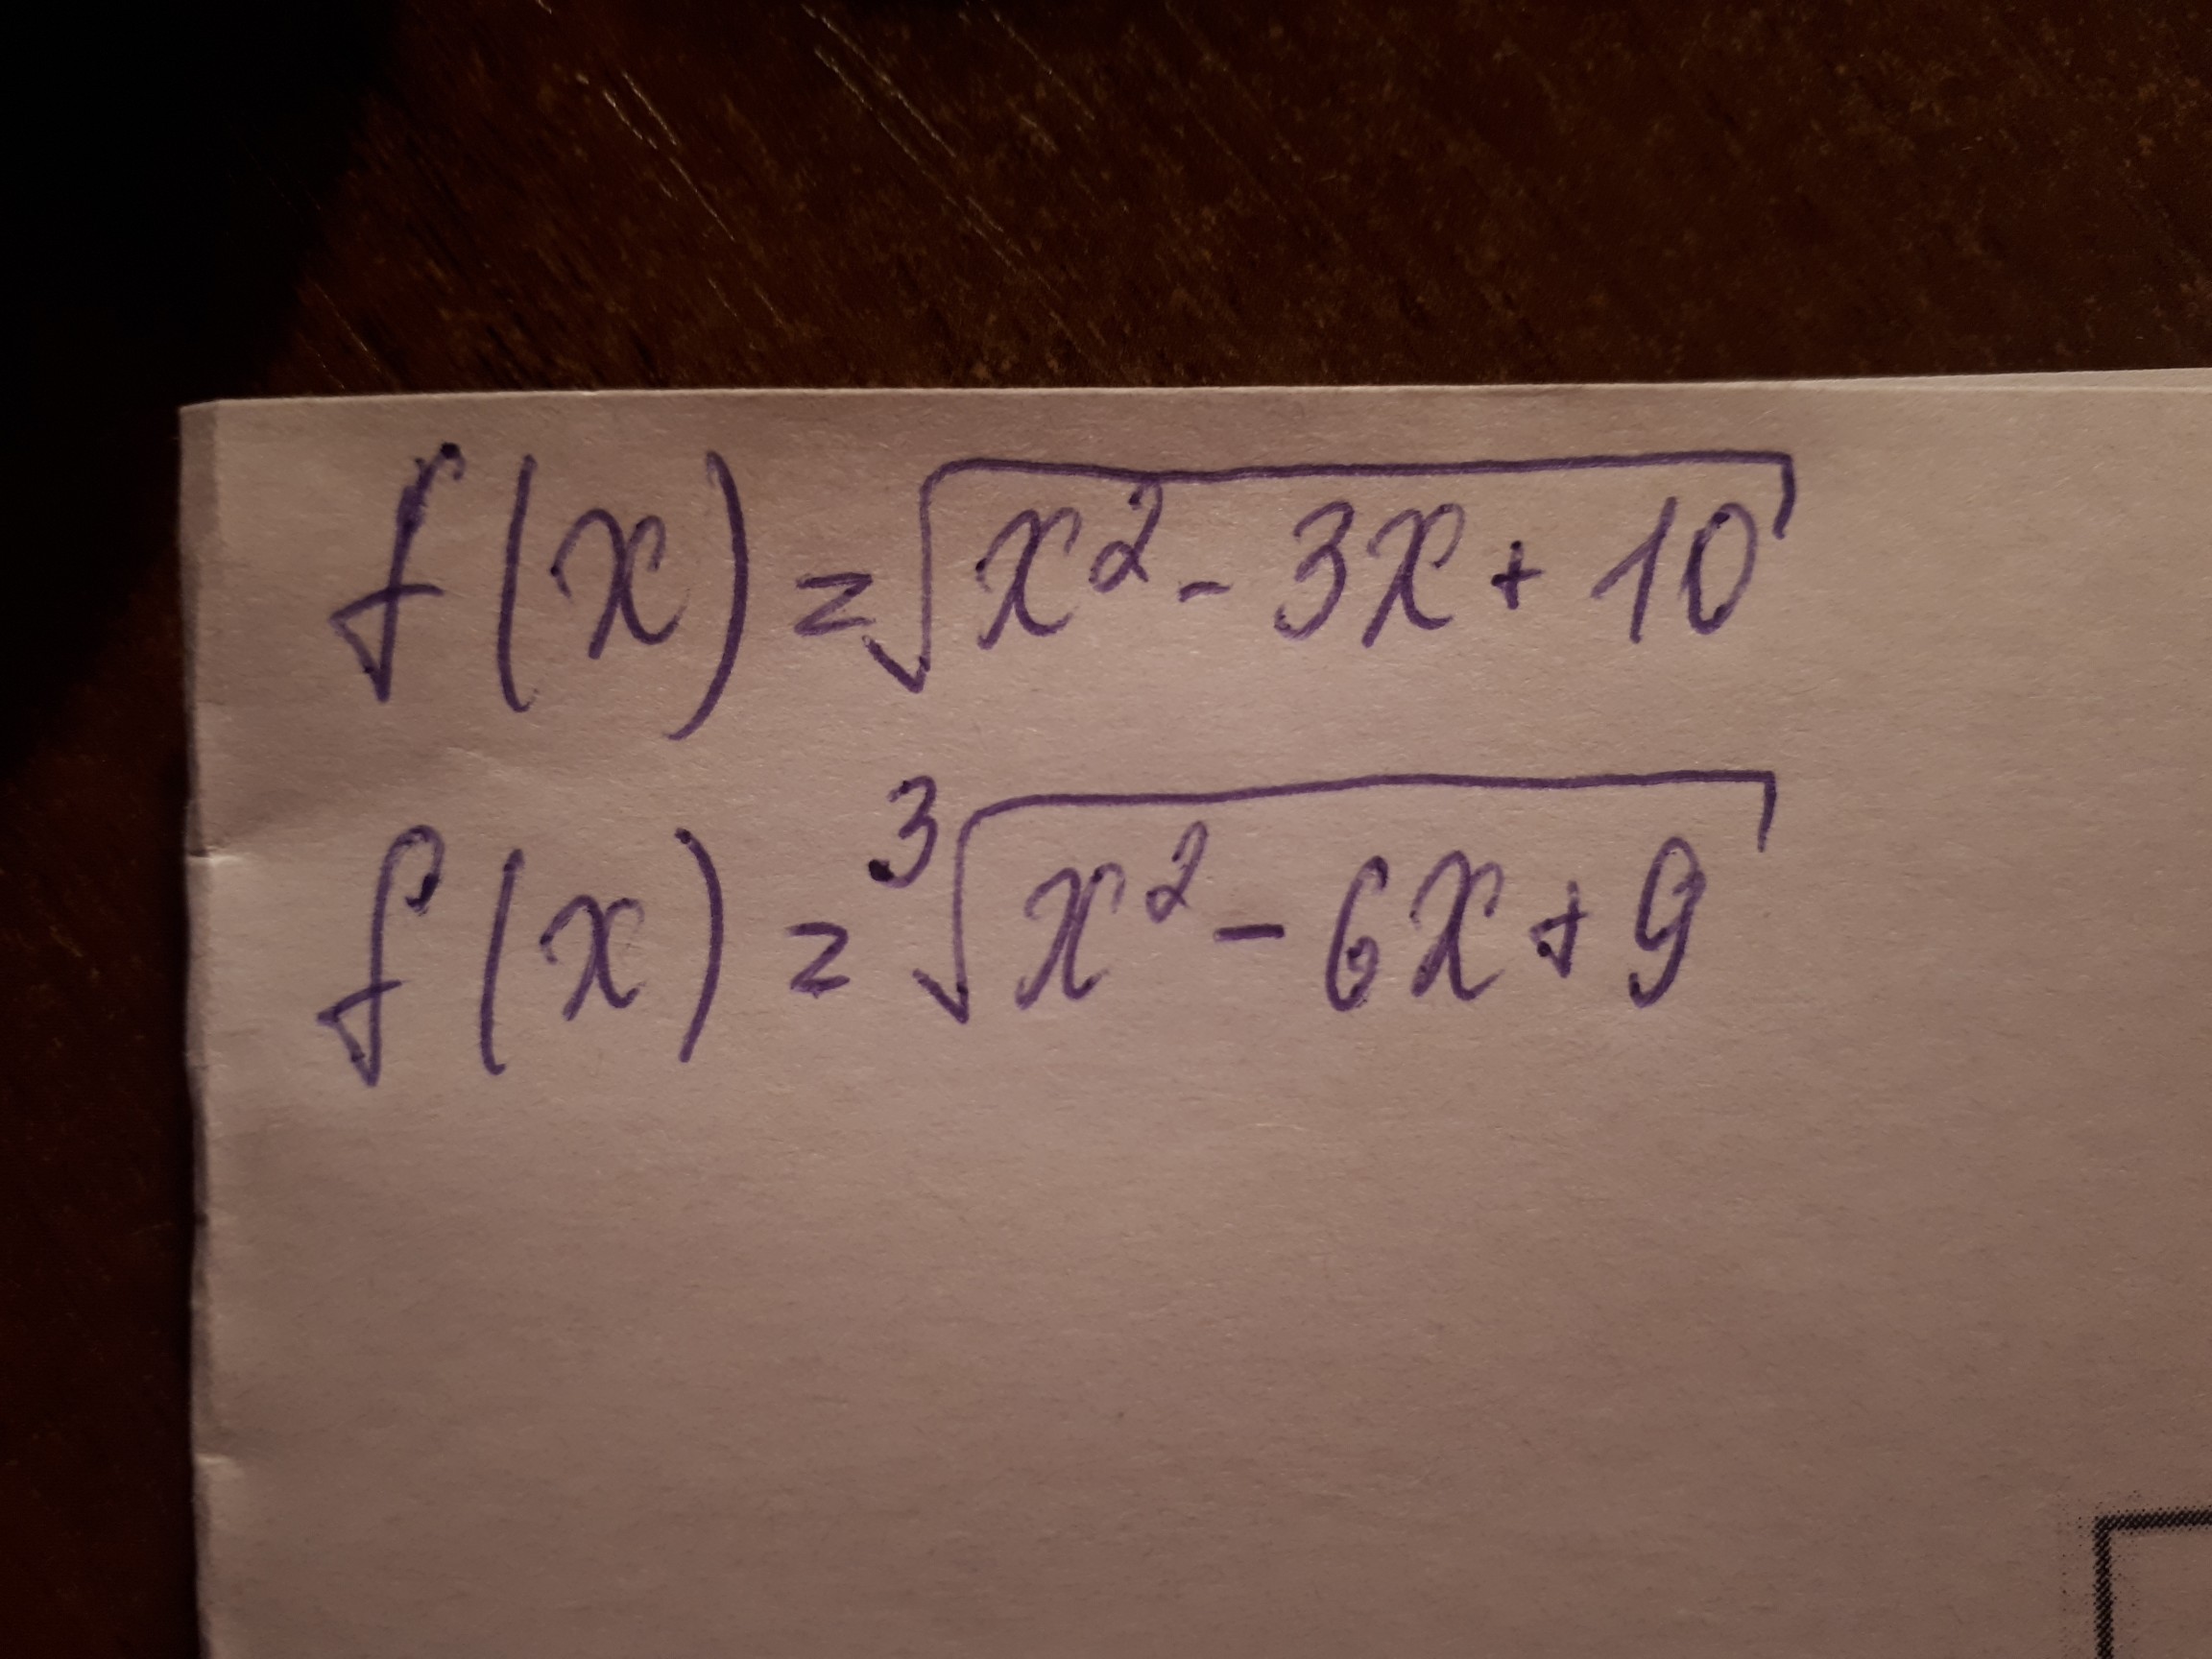 f(x) = √(x² - 3x + 10)
f(x) = ³√(x² - 6x + 9)